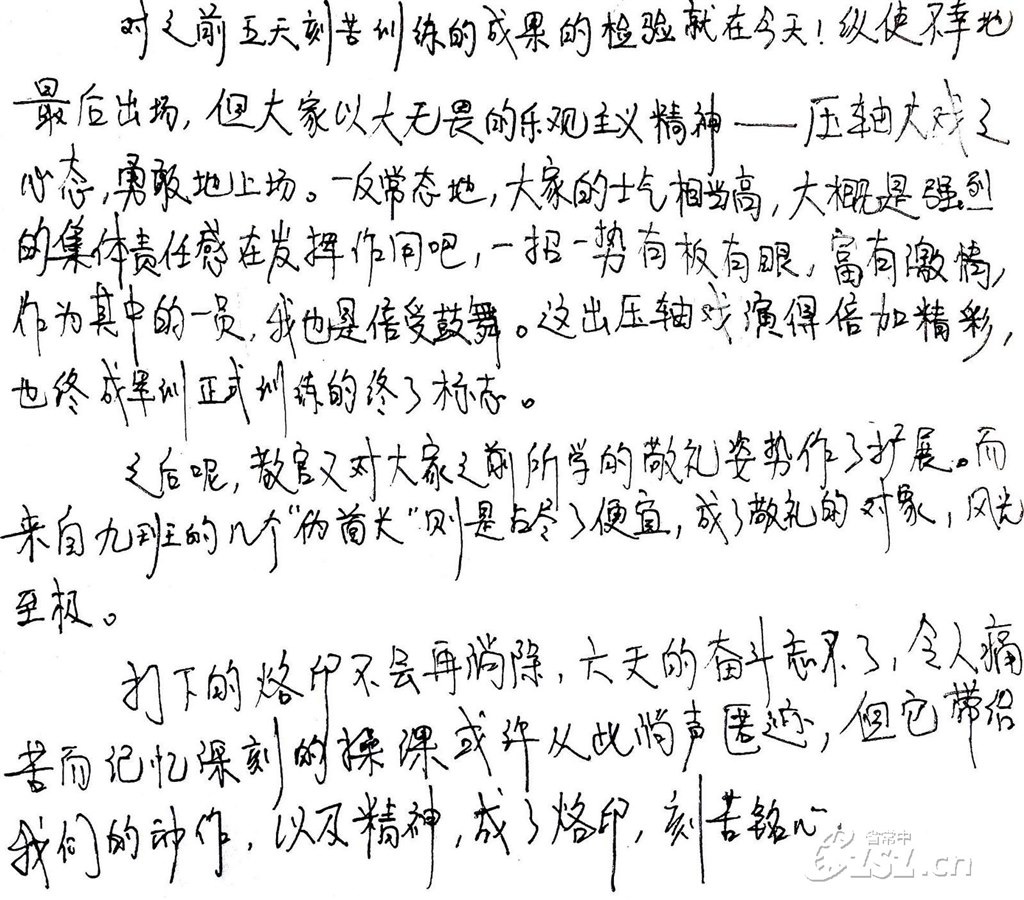 对之前五天刻苦训练的成果的检验就在今天！纵使不幸地
最后出场，但大家以大无畏的乐观主义精神——压轴大戏之
心态，勇敢地上场。一反常态地，大家的士气相当高，大概是强烈
的集体责任感在发挥作用吧，一招一势有板有眼，富有激情，
作为其中的一员，我也是倍受鼓舞。这出压轴戏演得倍加精彩，
也终成军训正式训练的终了标志。
之后呢，教官又对大家之前所学的敬礼姿势作了扩展。而
来自九班的几个“伪首长”则是占尽了便宜，成了敬礼的对象，风光
至极。
打下的烙印不会再消除，六天的奋斗忘不了，令人痛
苦而记忆深刻的操课或许从此悄声匿迹，但它带给
我们的动作，以及精神，成了烙印，刻苦铭心。
省常中
LSL.cn